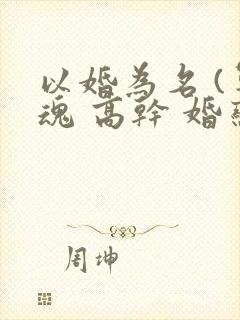 以婚為名(
魂 高幹 婚
周坤